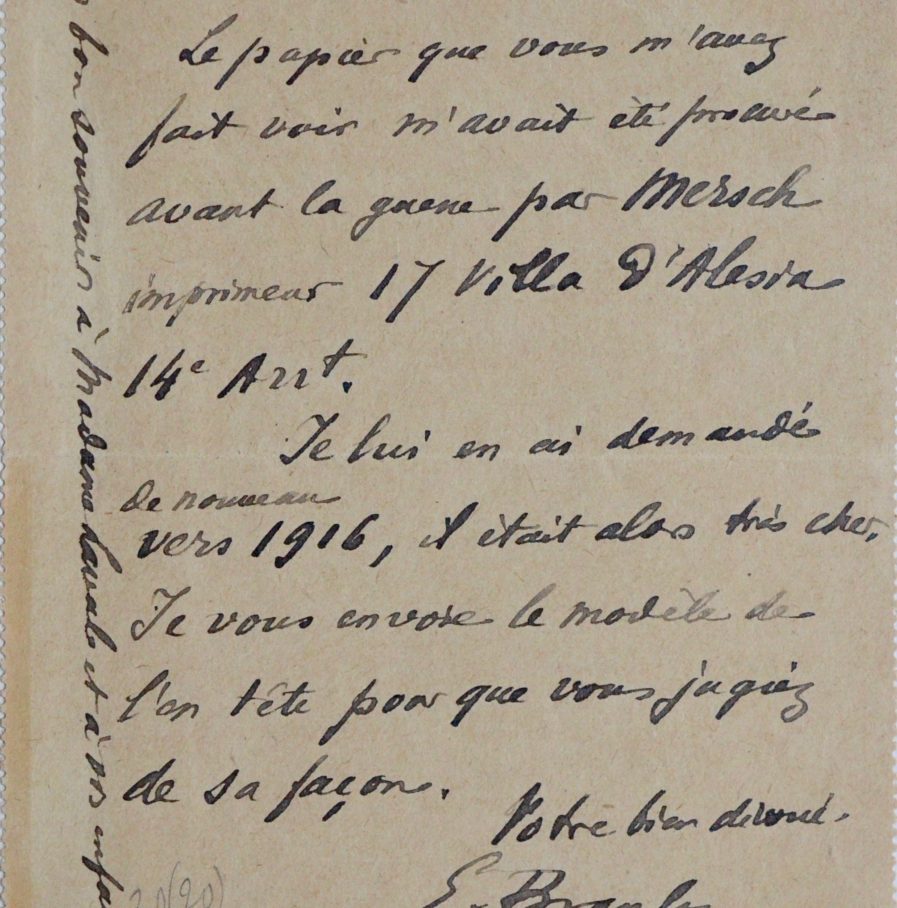 Le papier que vous m'avez
fait voir m'avait été procuré
avant la guerre par Mersch
imprimeur 17 Villa d'Alesia
14e Arrt.
Je lui en ai demandé
de nouveau
vers 1916, il était alors très cher.
Je vous envoie le modèle de
l'en tête pour que vous jugiez
de sa façon.
Votre bien dévoué.
E. Branly
bon souvenir à Madame et à vos
20(20)